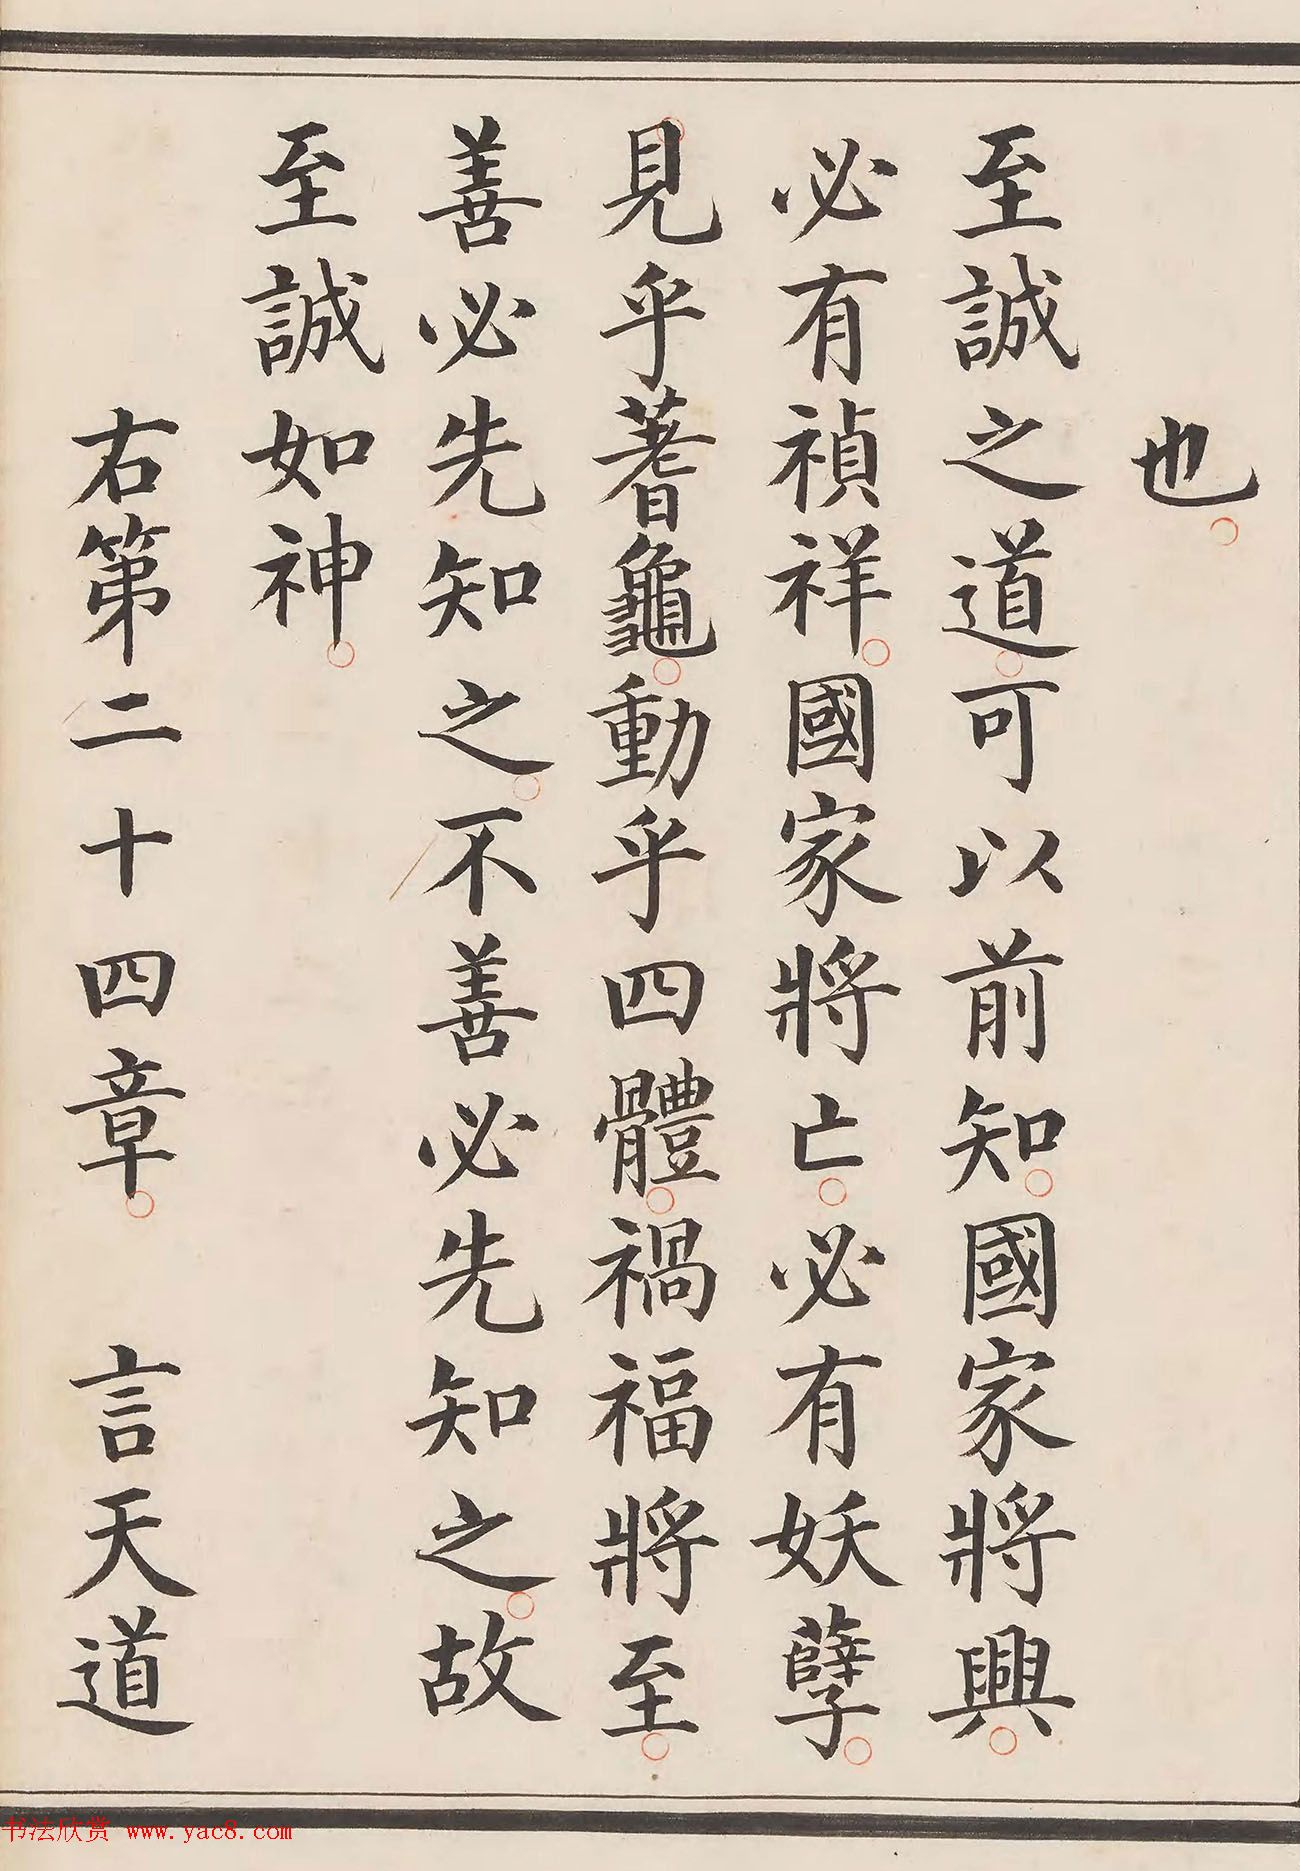 也○
至誠之道○可以前知○國家將興○
必有禎祥○國家將亡○必有妖孽○
見乎蓍龜○動乎四體○禍福將至○
善必先知之○不善必先知之○故
至誠如神○
右第二十四章○ 言天道
书法欣赏 www.yac8.com